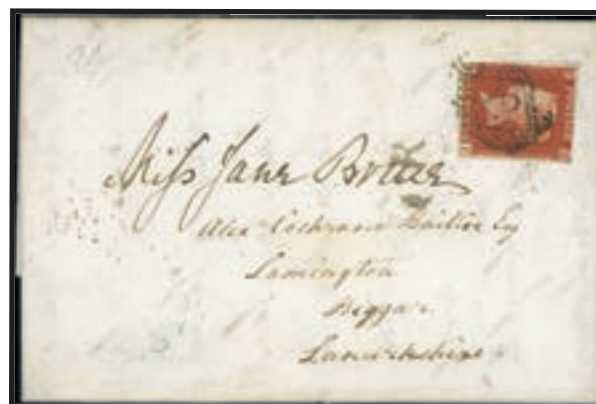 Miss Jane
Alexr Cochrane Baillie Esq
Lamington
Biggar
Lanarkshire